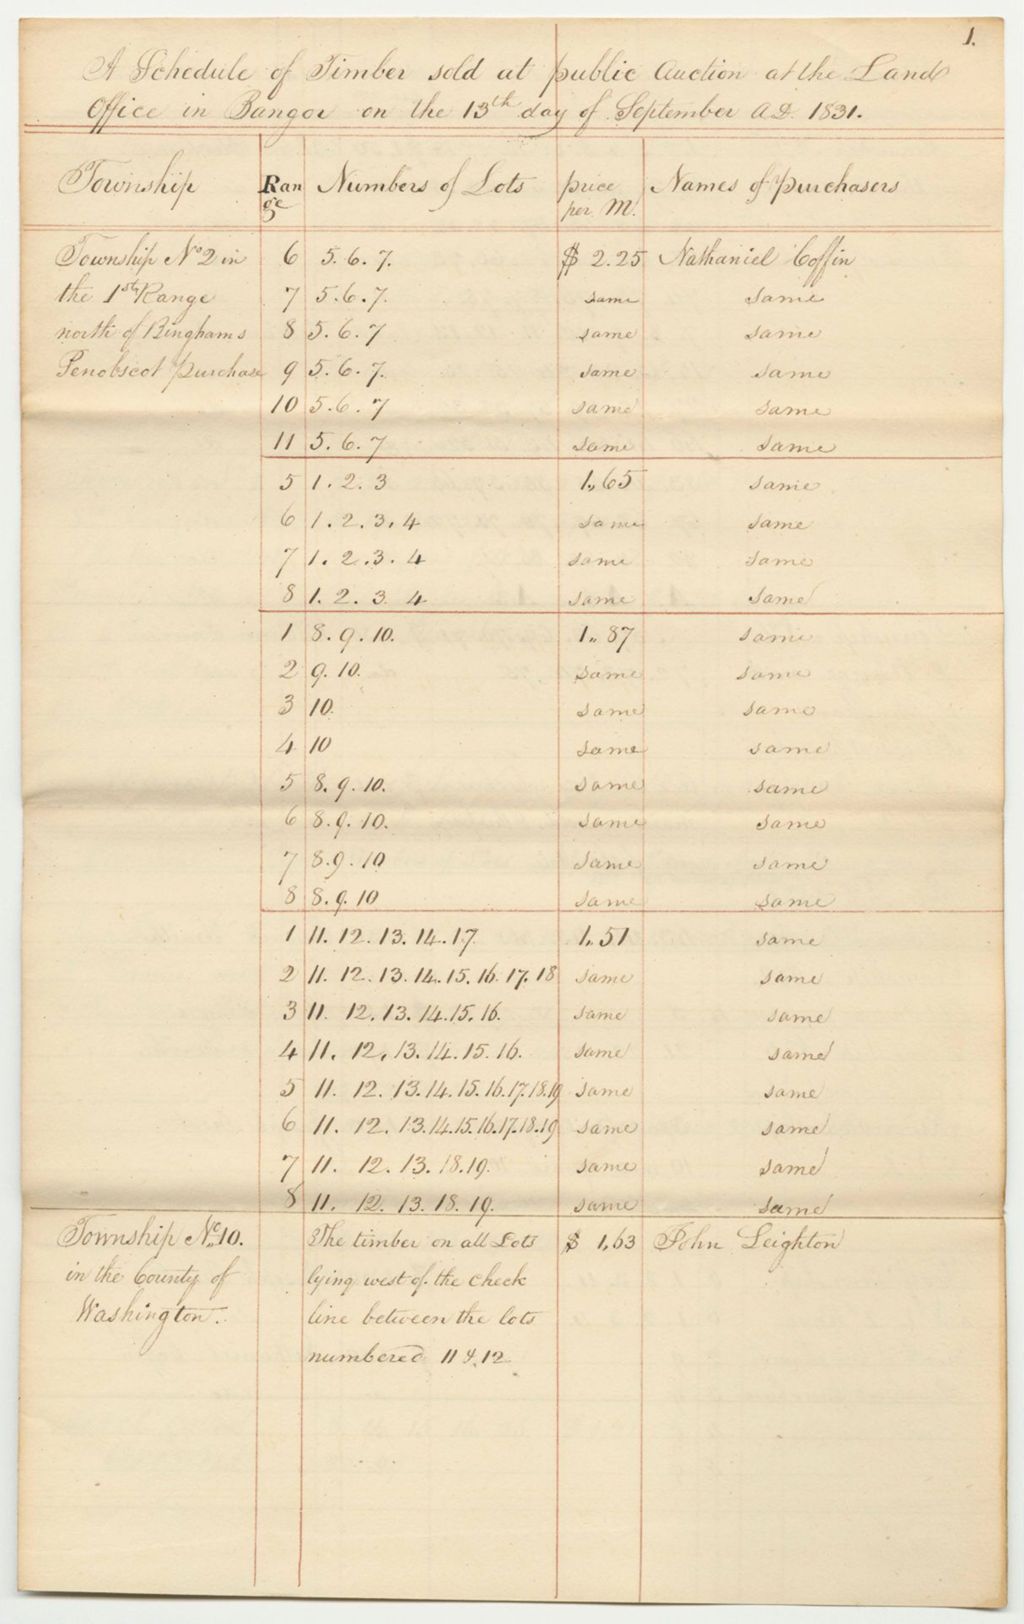 1.
A Schedule of Timber sold at public Auction at the Land
Office in Bangor on the 13th day of September A.D. 1831.
Township Range Numbers of Lots price per M. Names of purchasers
Township No 2 in 6 5. 6. 7. $ 2.25 Nathaniel Coffin
the 1st Range 7 5. 6. 7. same same
north of Binghams 8 5. 6. 7 same same
Penobscot purchase 9 5. 6. 7. same same
10 5. 6. 7 same same
11 5. 6. 7 same same
5 1. 2. 3 1,,65 same
6 1. 2. 3. 4 same same
7 1. 2. 3. 4 same same
8 1. 2. 3 4 same same
1 8. 9. 10. 1,,87 same
2 9. 10. same same
3 10. same same
4 10 same same
5 8. 9. 10. same same
6 8. 9. 10. same same
7 8. 9. 10 same same
8 8. 9. 10 same same
1 11. 12. 13. 14. 17. 1,,51 same
2 11. 12. 13. 14. 15. 16. 17. 18 same same
3 11. 12. 13. 14. 15. 16. same same
4 11. 12. 13. 14. 15. 16. same same
5 11. 12. 13. 14. 15. 16. 17. 18. 19 same same
6 11. 12. 13. 14. 15. 16. 17. 18. 19 same same
7 11. 12. 13. 18. 19. same same
8 11. 12. 13. 18. 19. same same
Township No. 10. The timber on all Lots $ 1,63 John Leighton
in the County of lying west of the check
Washington. line between the lots
numbered 11 & 12